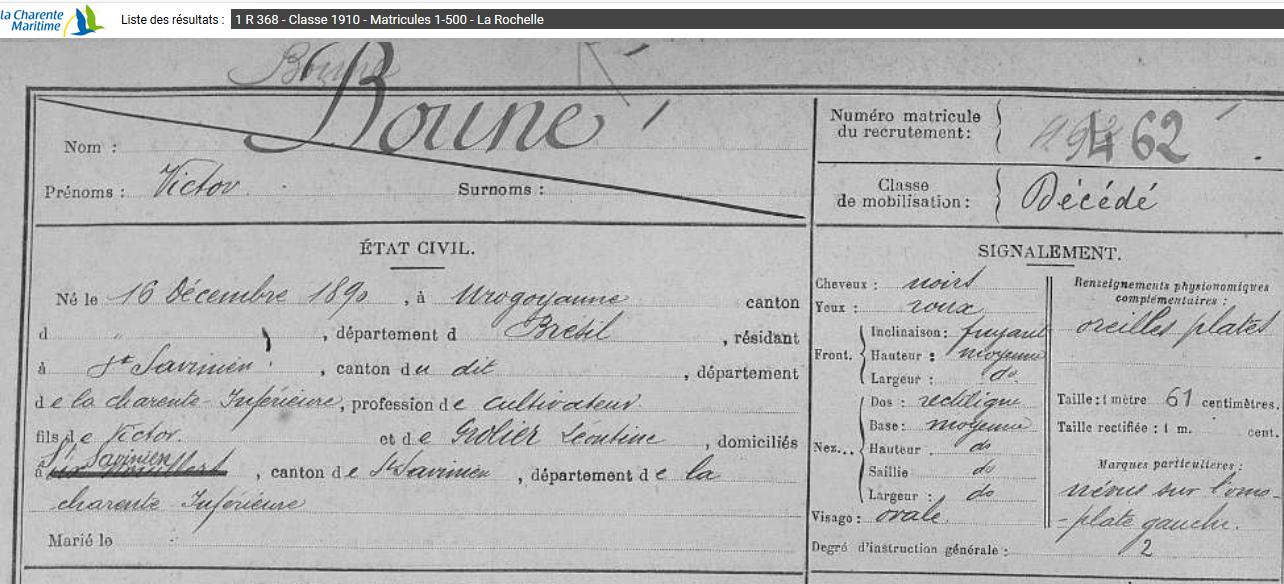 la Charente
Maritime
Liste des résultats : 1 R 368 - Classe 1910 - Matricules 1-500 - La Rochelle
Boune
Nom : Boune
Prénoms : Victor Surnoms :
Numéro matricule
du recrutement : 462
Classe
de mobilisation : Décédé
ÉTAT CIVIL.
Né le 16 Décembre 1890, à Urogoyanne canton
d " , département d Brésil , résidant
à St Savinien , canton du dit , département
de la charente-Inférieure, profession de cultivateur
fils de Victor et de Grolier Léontine , domiciliés
St Savinien
à , canton de St Savinien , département de la
charente Inférieure
Marié le
SIGNALEMENT.
Cheveux : noirs
Yeux : roux
Front. Inclinaison : fuyant
Hauteur : moyenne
Largeur : do
Nez... Dos : rectiligne
Base : moyenne
Hauteur do
Saillie do
Largeur : do
Visage : ovale.
Degré d'instruction générale : 2
Renseignements physionomiques
complémentaires :
oreilles plates
Taille : 1 mètre 61 centimètres.
Taille rectifiée : 1 m. cent.
Marques particulières :
névus sur l'omo-
-plate gauche.